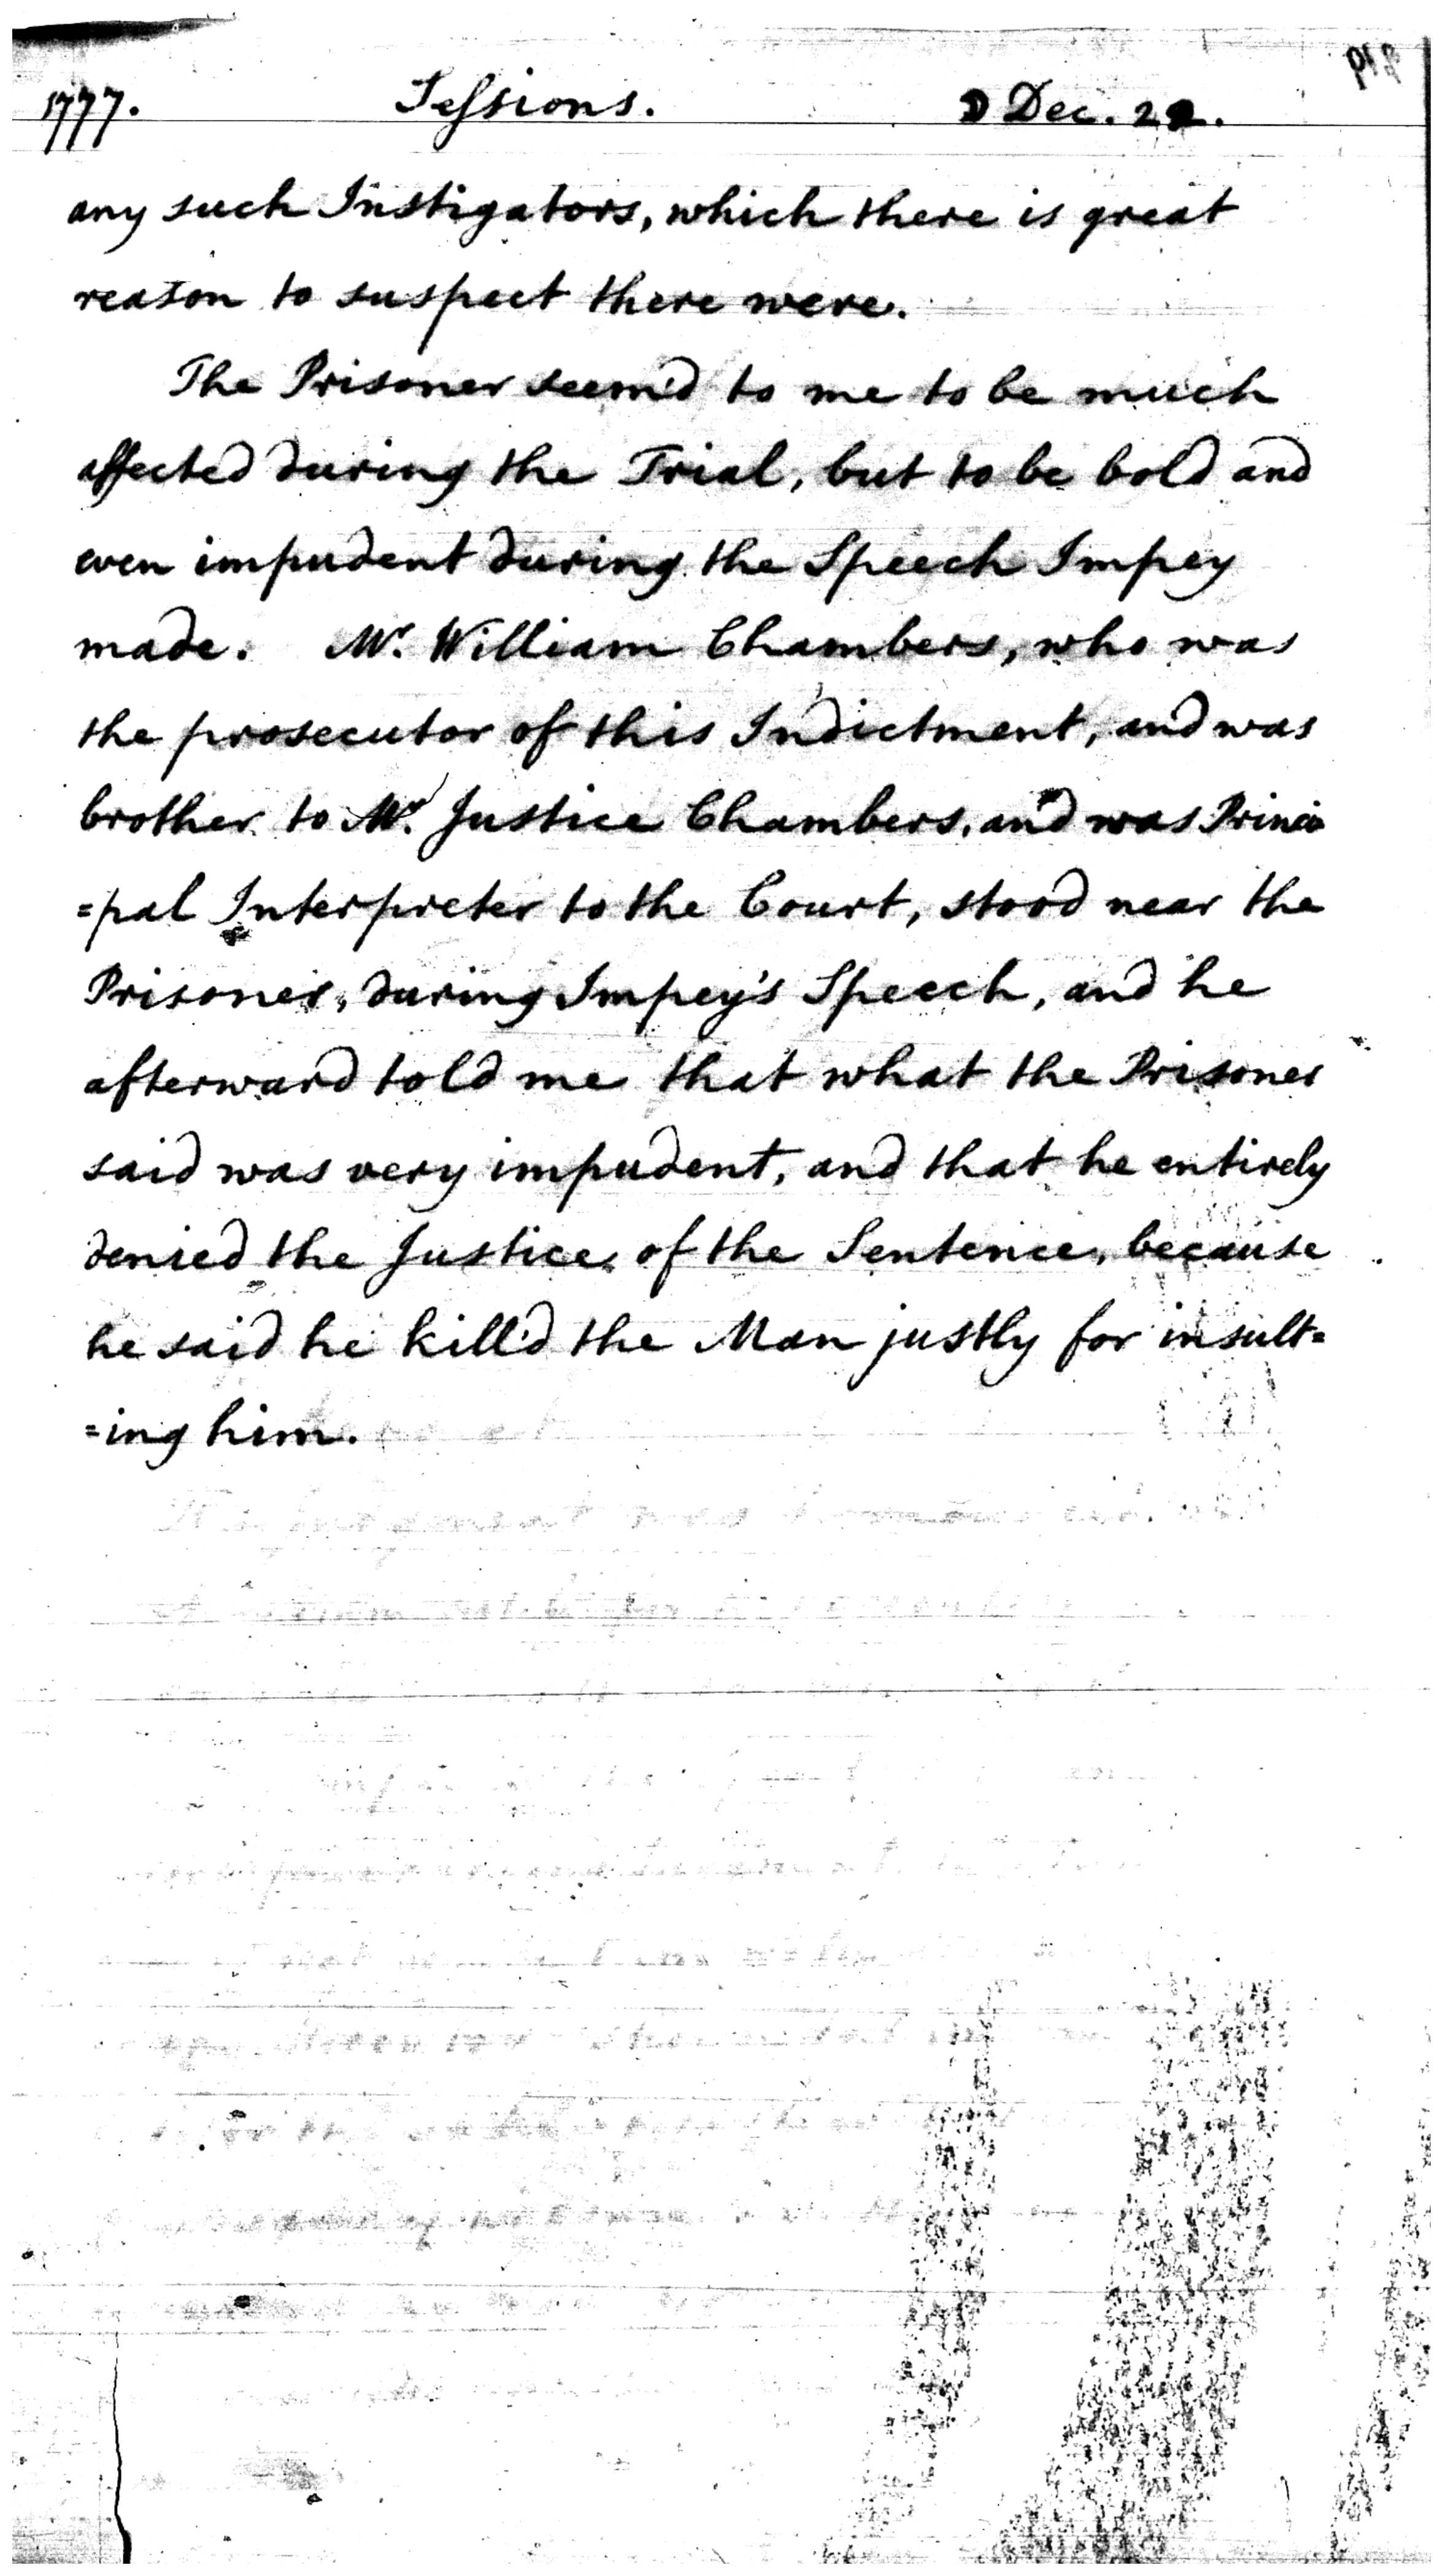 1777. Sessions. ☽ Dec. 22.
any such Instigators, which there is great
reason to suspect there were.
The Prisoner seem'd to me to be much
affected during the Trial, but to be bold and
even impudent during the Speech Impey
made. Mr. William Chambers, who was
the prosecutor of this Indictment, and was
brother to Mr. Justice Chambers, and was Princi
=pal Interpreter to the Court, stood near the
Prisoner, during Impey's Speech, and he
afterward told me that what the Prisoner
said was very impudent, and that he entirely
denied the Justice of the Sentence, because
he said he kill'd the Man justly for insult=
=ing him.